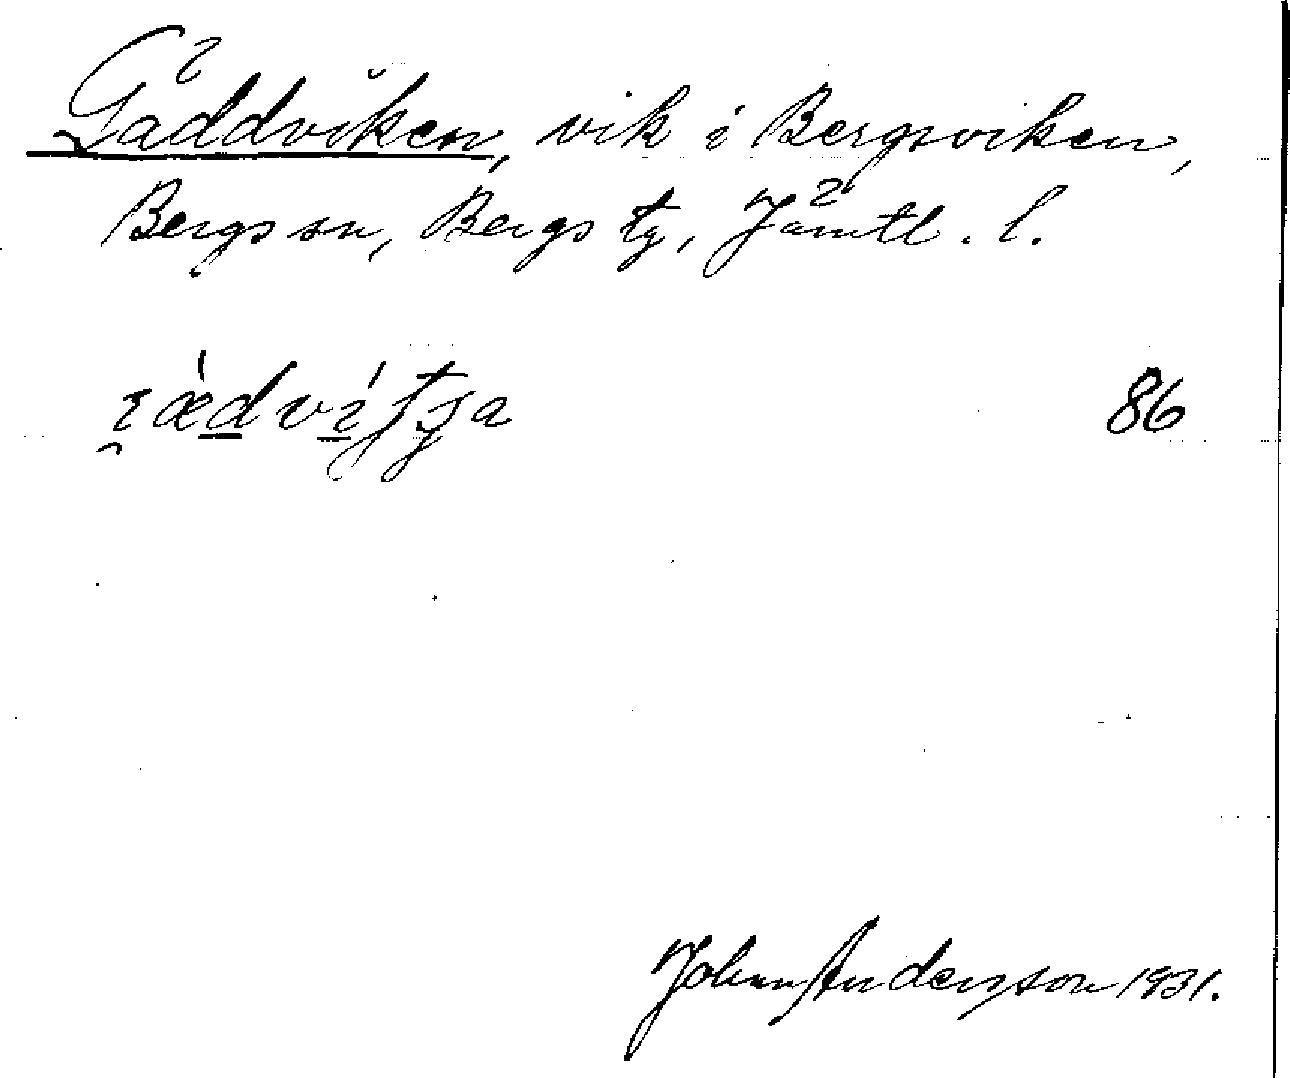 Gäddviken, vik i Bergsviken,
Bergs sn, Bergs tg, Jämtl. l.
86
Johan Anderson 1931.